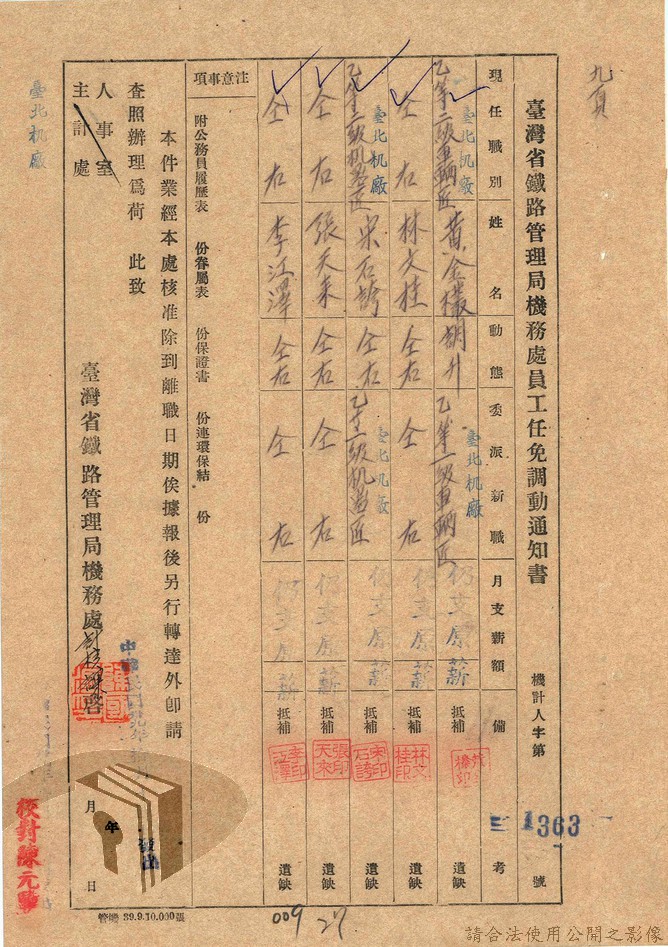 九頁
臺灣省鐵路管理局機務處員工任免調動通知書
機計人字第 1363 號
現任職別 姓名 動態 委派新職 月支薪額 備考
臺北机廠 乙等二級車輛匠 黃金 調升 臺北机廠 乙等一級車輛匠 仍支原薪 抵補 遺缺
仝右 林文桂 仝右 仝右 仍支原薪 抵補 林文桂印 遺缺
臺北机廠 乙等二級机器匠 宋石誇 仝右 臺北机廠 乙等一級机器匠 仍支原薪 抵補 宋石誇印 遺缺
仝右 張天來 仝右 仝右 仍支原薪 抵補 張天來印 遺缺
仝右 李江澤 仝右 仝右 仍支原薪 抵補 李江澤印 遺缺
注意事項
附公務員履歷表 份眷屬表 份保證書 份連環保結 份
本件業經本處核准除到離職日期俟據報後另行轉達外即請
查照辦理爲荷 此致
人事室
主計處
臺北机廠
臺灣省鐵路管理局機務處 啓
中華民國 年 月 日
發出
校對陳元
管機 39.9.10.000張
009 27
請合法使用公開之影像